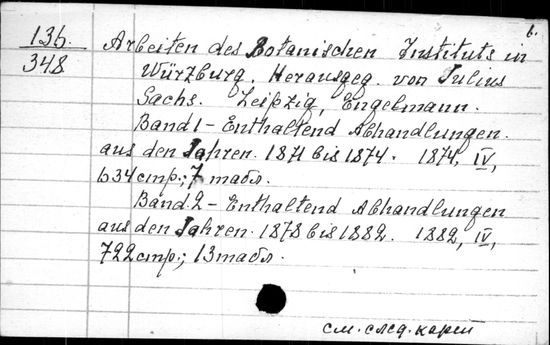 б.
136.
348
Arbeiten des Botanischen Instituts in
Würzburg. Herausgeg. von Julius
Sachs. Leipzig, Engelmann.
Band 1 - Enthaltend Abhandlungen.
aus den Jahren. 1871 bis 1874. 1874, IV,
634 стр.; 7 табл.
Band 2 - Enthaltend Abhandlungen
aus den Jahren. 1878 bis 1882. 1882, IV,
722 стр.; 13 табл.
см. след. карт